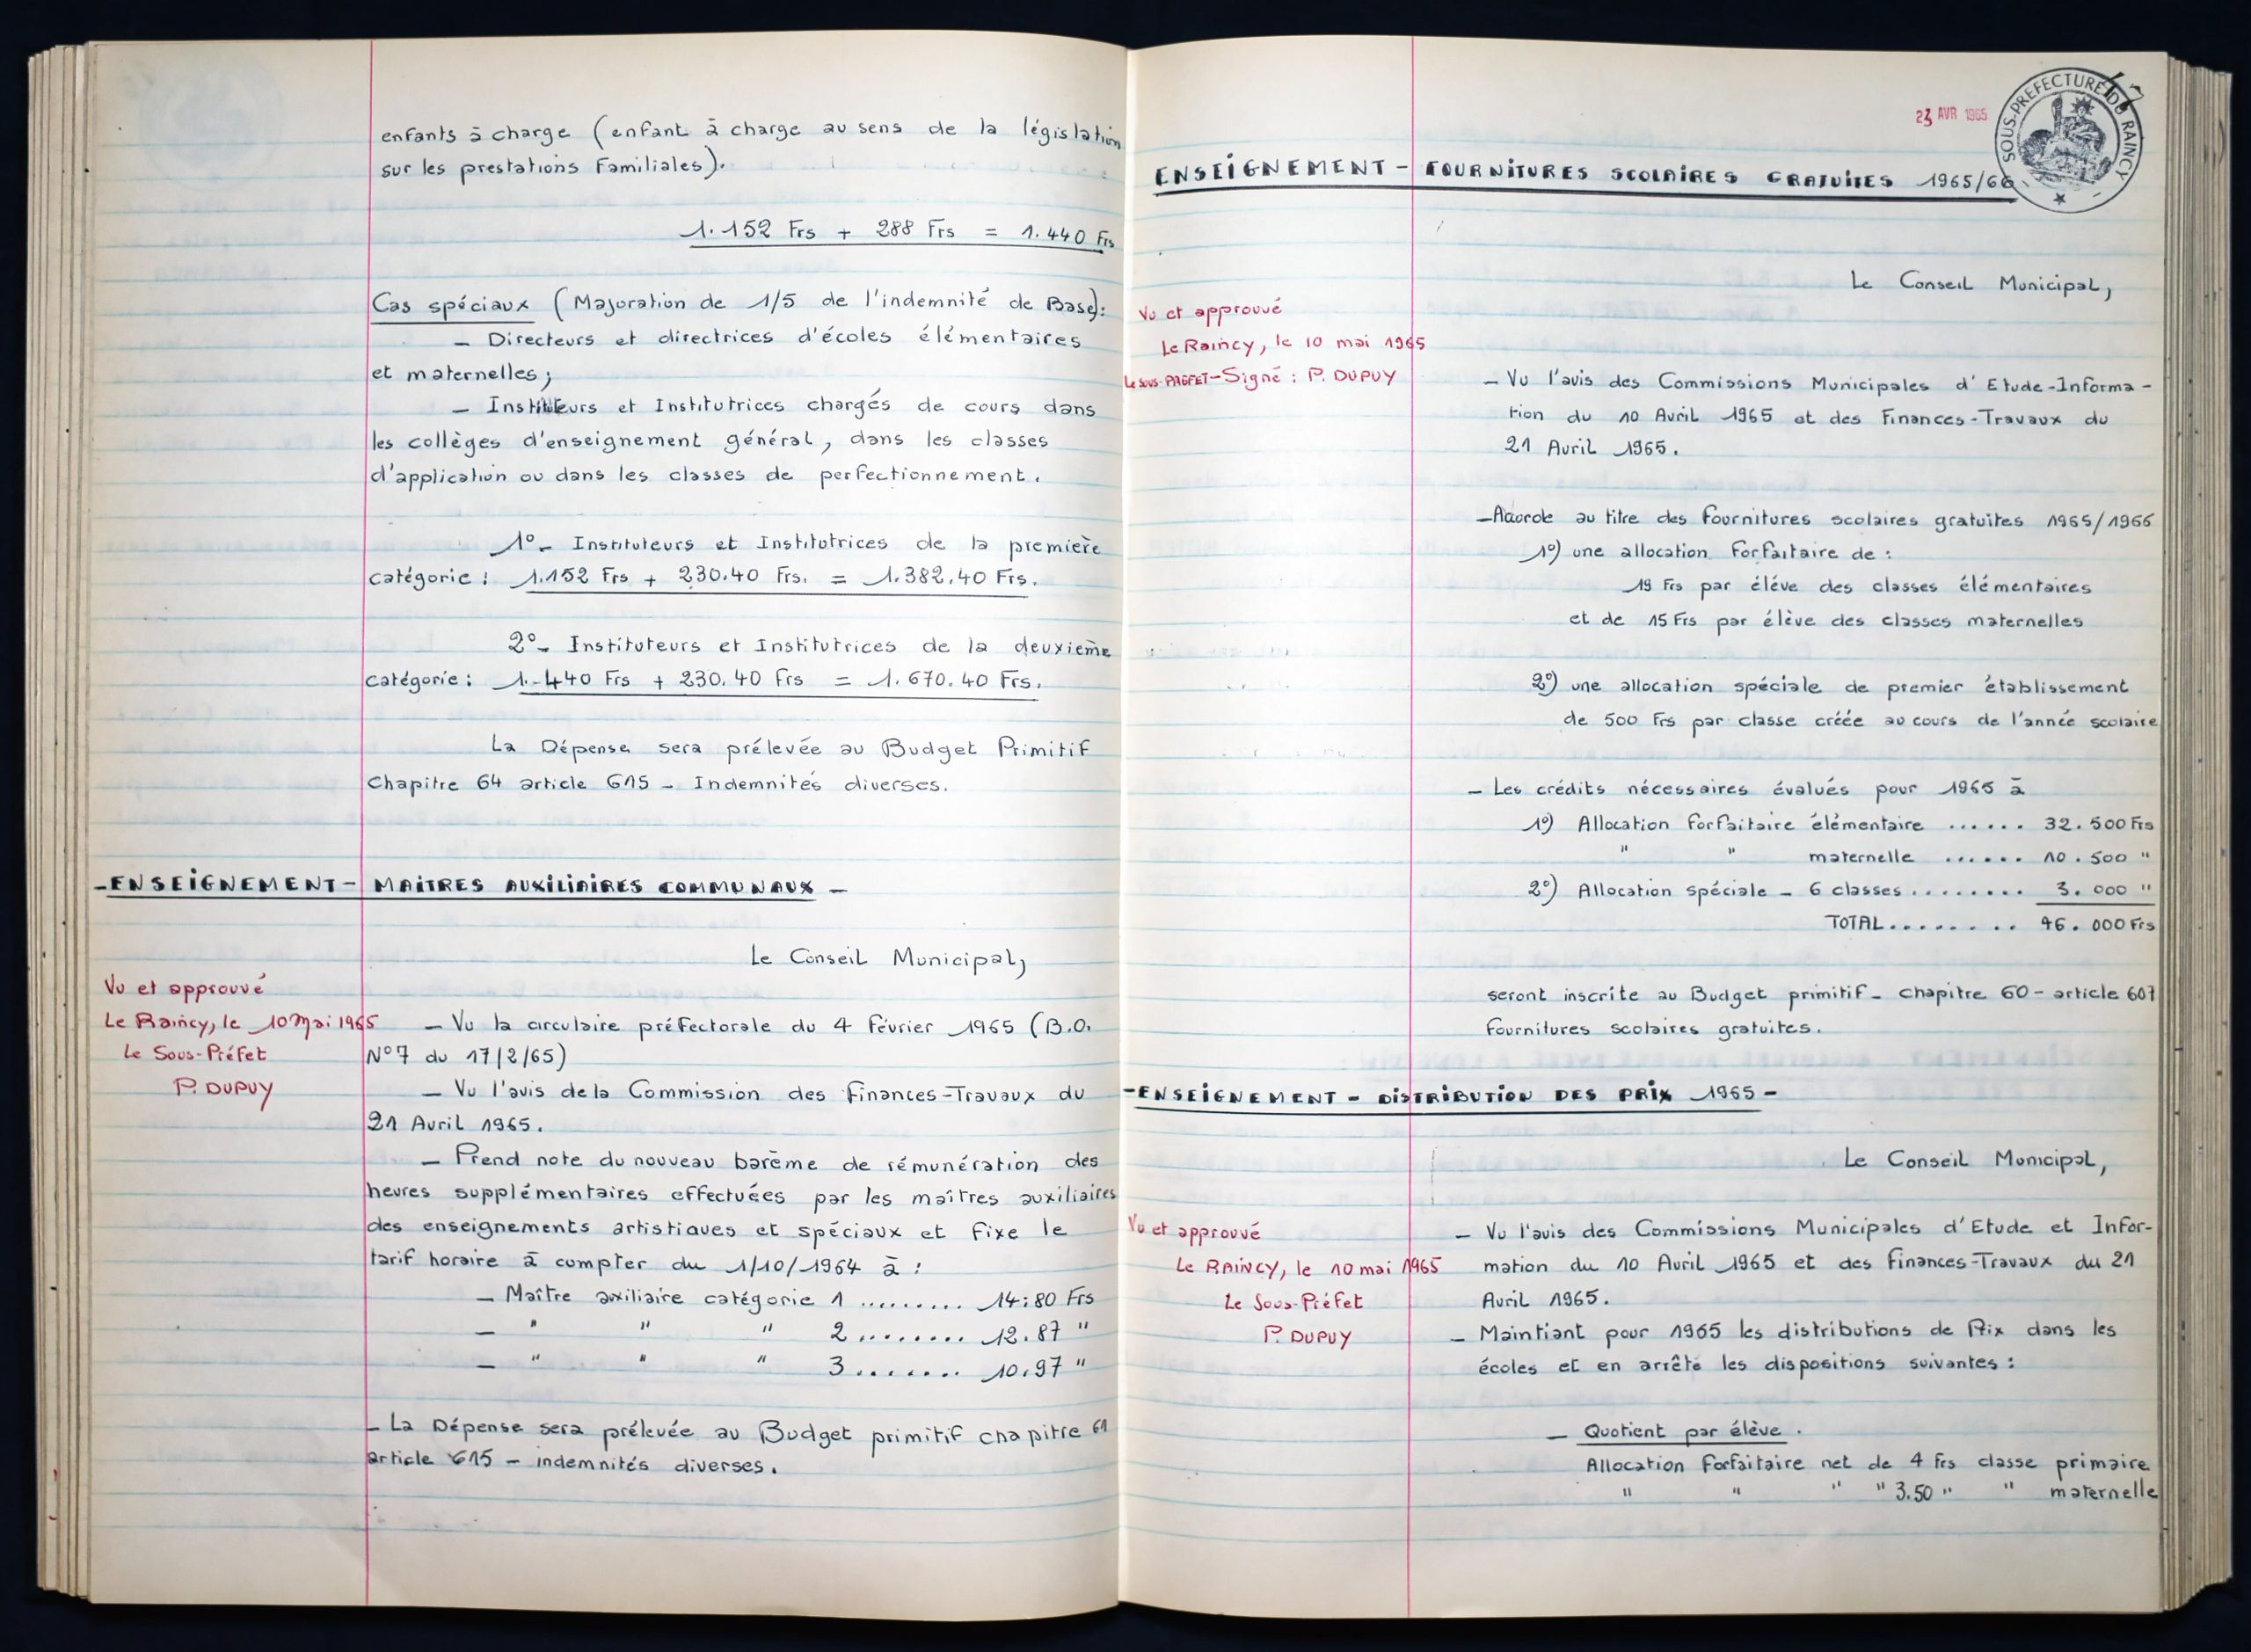 enfants à charge (enfant à charge au sens de la législation
sur les prestations Familiales).
1.152 Frs + 288 Frs = 1.440 Frs
Cas spéciaux (Majoration de 1/5 de l'indemnité de Base):
— Directeurs et directrices d'écoles élémentaires
et maternelles;
— Instituteurs et Institutrices chargés de cours dans
les collèges d'enseignement général, dans les classes
d'application ou dans les classes de perfectionnement.
1°- Instituteurs et Institutrices de la première
catégorie: 1.152 Frs + 230.40 Frs. = 1.382,40 Frs.
2°- Instituteurs et Institutrices de la deuxième
catégorie: 1.440 Frs + 230.40 Frs = 1.670.40 Frs.
La Dépense sera prélevée au Budget Primitif
Chapitre 64 article 615 - Indemnités diverses.
-ENSEIGNEMENT- MAITRES AUXILIAIRES COMMUNAUX -
Le Conseil Municipal,
Vu et approuvé
Le Raincy, le 10 Mai 1965
Le Sous-Préfet
P. DUPUY
— Vu la circulaire préfectorale du 4 Février 1965 (B.O.
N°7 du 17/2/65)
— Vu l'avis de la Commission des Finances-Travaux du
21 Avril 1965.
— Prend note du nouveau barème de rémunération des
heures supplémentaires effectuées par les maîtres auxiliaires
des enseignements artistiques et spéciaux et fixe le
tarif horaire à compter du 1/10/1964 à :
— Maître auxiliaire catégorie 1 ......... 14:80 Frs
— " " " 2 ........ 12.87 "
— " " " 3 ....... 10.97 "
- La Dépense sera prélevée au Budget primitif chapitre 61
article 615 - indemnités diverses.
23 AVR 1965
SOUS-PREFECTURE DU RAINCY
ENSEIGNEMENT - FOURNITURES SCOLAIRES GRATUITES 1965/66
Le Conseil Municipal,
Vu et approuvé
Le Raincy, le 10 mai 1965
Le Sous-PREFET-Signé : P. DUPUY
- Vu l'avis des Commissions Municipales d'Etude-Informa-
tion du 10 Avril 1965 et des Finances-Travaux du
21 Avril 1965.
-Accorde au titre des Fournitures scolaires gratuites 1965/1966
1°) une allocation Forfaitaire de :
19 Frs par élève des classes élémentaires
et de 15 Frs par élève des classes maternelles
2°) une allocation spéciale de premier établissement
de 500 Frs par classe créée au cours de l'année scolaire
- Les crédits nécessaires évalués pour 1965 à
1°) Allocation Forfaitaire élémentaire ...... 32.500 Frs
" " maternelle ...... 10.500 "
2°) Allocation spéciale - 6 classes ........ 3.000 "
TOTAL ........ 46.000 Frs
seront inscrite au Budget primitif - chapitre 60 - article 607
Fournitures scolaires gratuites.
-ENSEIGNEMENT - DISTRIBUTION DES PRIX 1965 -
Le Conseil Municipal,
Vu et approuvé
Le RAINCY, le 10 mai 1965
Le Sous-Préfet
P. DUPUY
- Vu l'avis des Commissions Municipales d'Etude et Infor-
mation du 10 Avril 1965 et des Finances-Travaux du 21
Avril 1965.
- Maintiant pour 1965 les distributions de Prix dans les
écoles et en arrête les dispositions suivantes :
- Quotient par élève.
Allocation Forfaitaire net de 4 Frs classe primaire
" " " " 3.50 " " maternelle